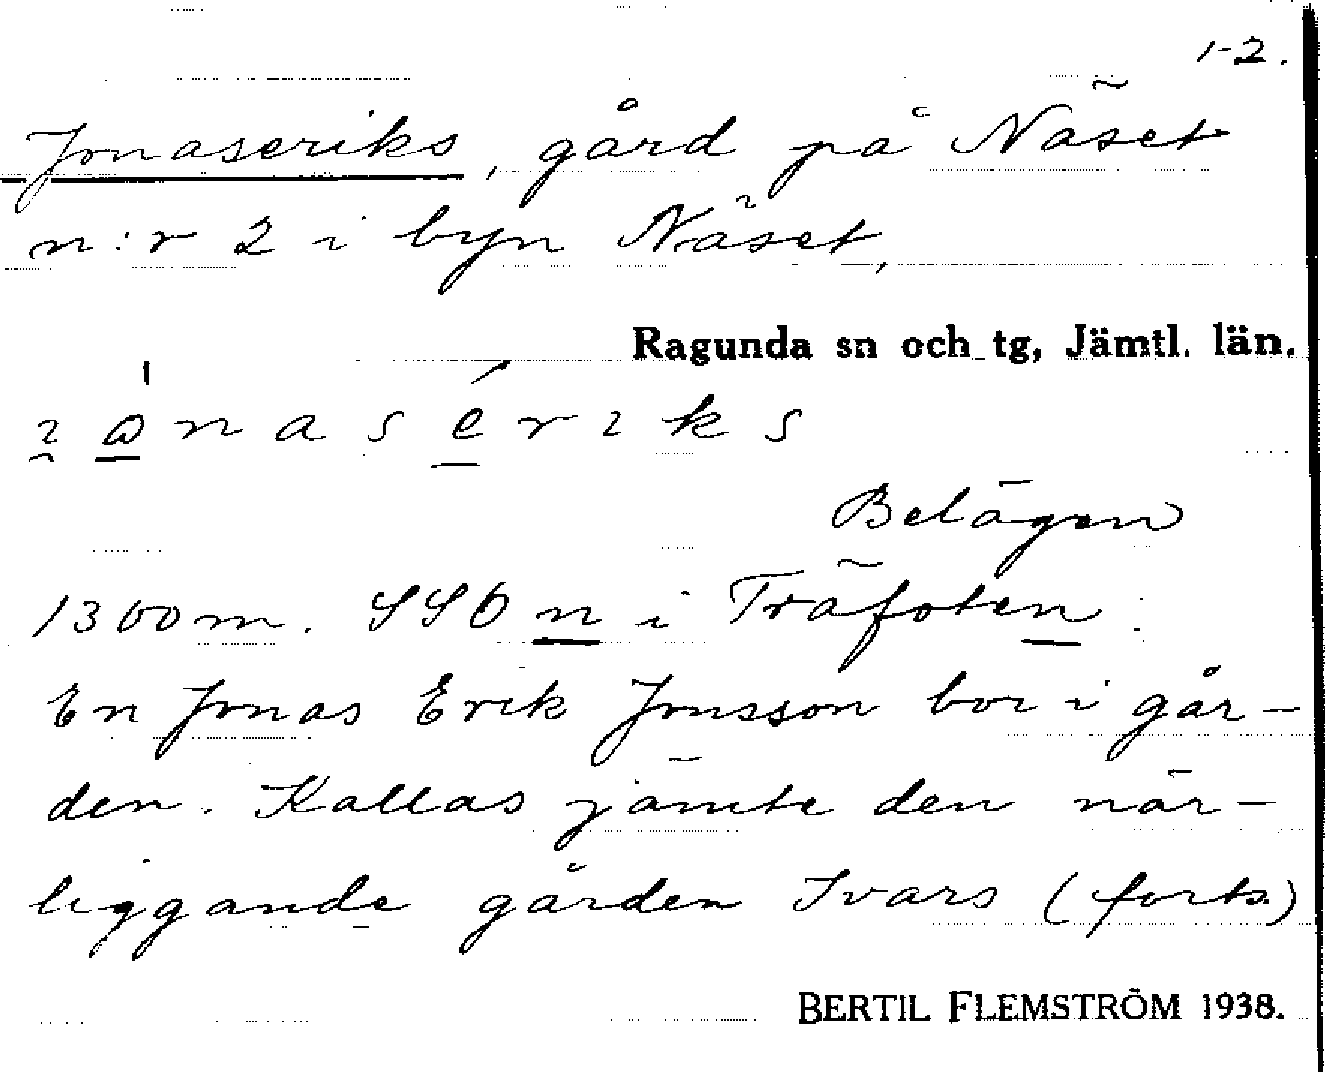 1-2.
Jonaseriks, gård på Näset
n:r 2 i byn Näset,
Ragunda sn och tg, Jämtl. län.
Belägen
1300 m. SSO n i Träfoten.
En Jonas Erik Jonsson bor i går-
den. Kallas jämte den när-
liggande gården Ivars (forts.)
BERTIL FLEMSTRÖM 1938.